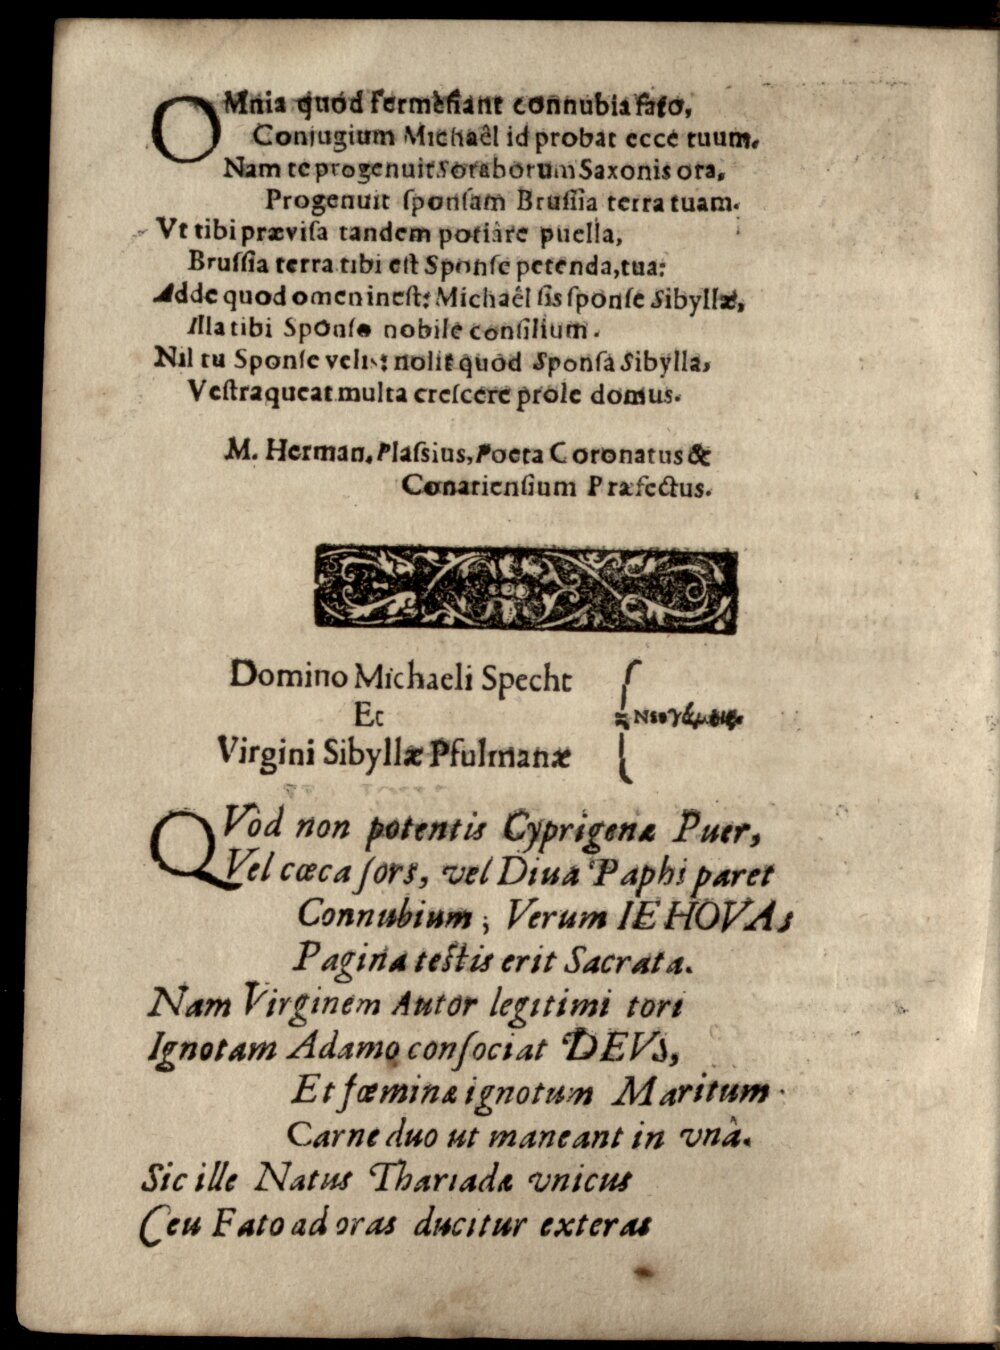 OMnia quòd fermè fiant connubia fato,
Conjugium Michaêl id probat ecce tuum.
Nam te progenuit Soraborum Saxonis ora,
Progenuit sponsam Brussia terra tuam.
Vt tibi prævisa tandem potiâre puella,
Brussia terra tibi est Sponse petenda, tua:
Adde quod omen inest: Michaêl sis sponse Sibyllæ,
Illa tibi Sponso nobile consilium.
Nil tu Sponse velis: nolit quòd Sponsa Sibylla,
Vestra queat multa crescere prole domus.
M. Herman. Plassius, Poeta Coronatus &
Conariensium Præfectus.
Domino Michaeli Specht
Et
Virgini Sibyllæ Pfulmanæ
QVòd non potentis Cyprigenæ Puer,
Vel cœca sors, vel Diva Paphi paret
Connubium; Verum IEHOVAs
Pagina testis erit Sacrata.
Nam Virginem Autor legitimi tori
Ignotam Adamo consociat DEVs,
Et fœminæ ignotum Maritum
Carne duo ut maneant in vnâ.
Sic ille Natus Thariadæ vnicus
Ceu Fato ad oras ducitur exteras